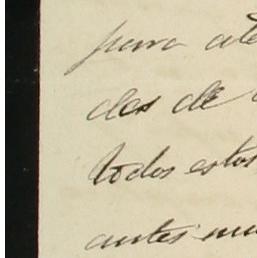 para ate
des de
todos estos
antes mu